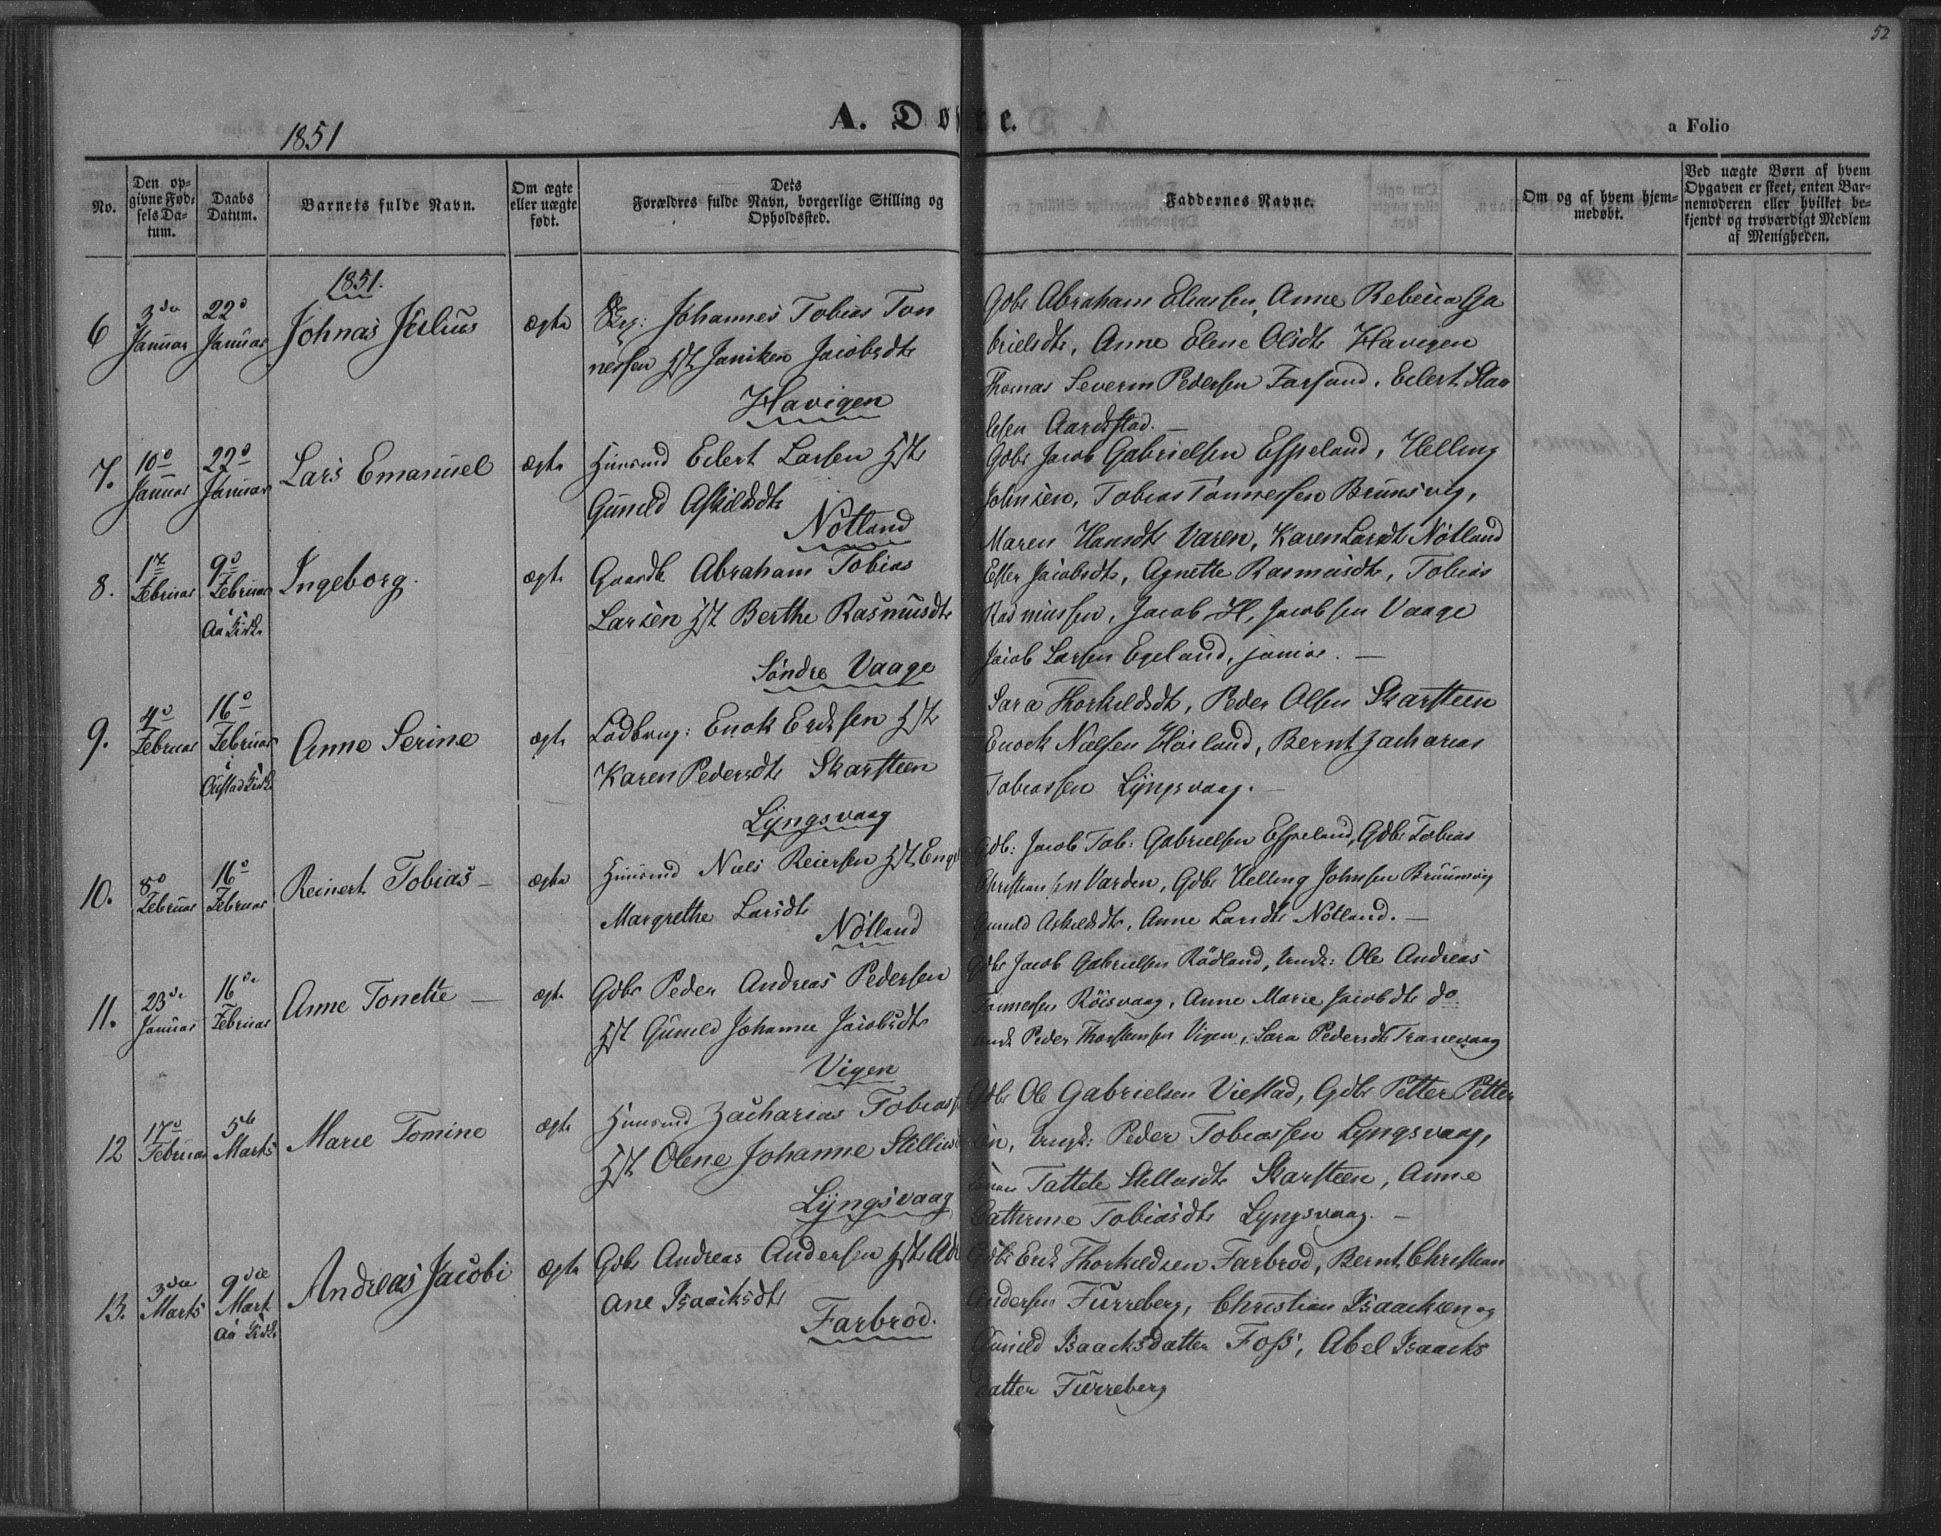 52
1851
A. Døbte.
a Folio
No.
Den op-
givne Fød-
sels Da-
tum.
Daabs
Datum.
Barnets fulde Navn.
Om ægte
eller uægte
født.
Dets
Forældres fulde Navn, borgerlige Stilling og
Opholdssted.
Faddernes Navne.
Om og af hvem hjem-
medøbt.
Ved uægte Børn af hvem
Opgaven er skeet, enten Bar-
nemoderen eller hvilket be-
kjendt og troværdigt Medlem
af Menigheden.
1851.
6
3die Januar
22d Januar
Johnas Julius
ægte
Johannes Tobias Tön
nessen Hst Janiken Jacobsdt
Havigen
Gdbr Abraham Eliassen, Anne Rebecca Ga
brielsdt, Anne Elene Olsdt Havigen
Thomas Severin Pedersen Farsund, Eilert Staa
lesen Aardstad. —
7.
10d Januar
22d Januar
Lars Emanuel
ægte
Huusmd Eilert Larsen Hst
Guneld Askildsdt
Nötland
Gdbr Jacob Gabrielsen Espeland, Helling
Johnsen, Tobias Tönnessen Brunsvig,
Maren Hansdt Varen, Karen Larsdt Nötland
8.
17 Februar
9d Februar
Aa Kirke
Ingeborg.
ægte
Gaardb Abraham Tobias
Larsen Hst Berthe Rasmusdt
Söndre Vaage
Ester Jacobsdt, Agnette Rasmusdt, Tobias
Rasmussen, Jacob H. Jacobsen Vaage
Jacob Larsen Egeland, junior. —
9.
4d Februar
16d Februar
i
Austad Kirke
Anne Serine
ægte
Lodbrug: Enok Eriksen Hst
Karen Pedersdt Skarsteen
Lyngsvaag
Sara Thorkildsdt, Peder Olsen Skarsteen
Enock Nielsen Höiland, Bernt Zacharias
Tobiassen Lyngsvaag. —
10.
8d Februar
16d Februar
Reinert Tobias —
ægte
Huusmd Niels Reiersen Hst Enge
Margrethe Larsdt
Nötland
Gdb: Jacob Tob: Gabrielsen Espeland, Gdbr Tobias
Christiansen Varden, Gdbr Helling Johnsen Bruunsvig
Guneld Askildsdt, Anne Larsdt Nötland. —
11.
23de Januar
16de Februar
Anne Tonette —
ægte
Gdbr Peder Andreas Pedersen
Hst Guneld Johanne Jacobsdt
Vigen
Gdbr Jacob Gabrielsen Rödland, Ungk: Ole Andreas
Tönnesen Röisvaag, Anne Marie Jacobsdt do
Ungk Peder Thorstensen Vigen, Sara Pedersdt Tranevaag
12
17d Februar
5te Marts
Marie Tomine
ægte
Huusmd Zacharias Tobiass
Hst Olene Johanne Stillius
Lyngsvaag
Gdbr Ole Gabrielsen Viestad, Gdbr Petter Petter
sen, Ungk: Peder Tobiassen Lyngsvaag,
Tattele Stellusdt Skarsteen, Anne
Cathrine Tobiasdt Lyngsvaag. —
13.
3die Marts
9die Mart
Aa Kirke
Andreas Jacobi
ægte
Gdbr Andreas Andersen Hst Adr
ane Isaacksdt
Farbrod.
Gdbr Erik Thorkildsen Farbrod, Bernt Christian
Andersen Furreberg, Christian Isaacksen og
Guneld Isaacksdatter Foss, Abel Isaacks
datter Furreberg